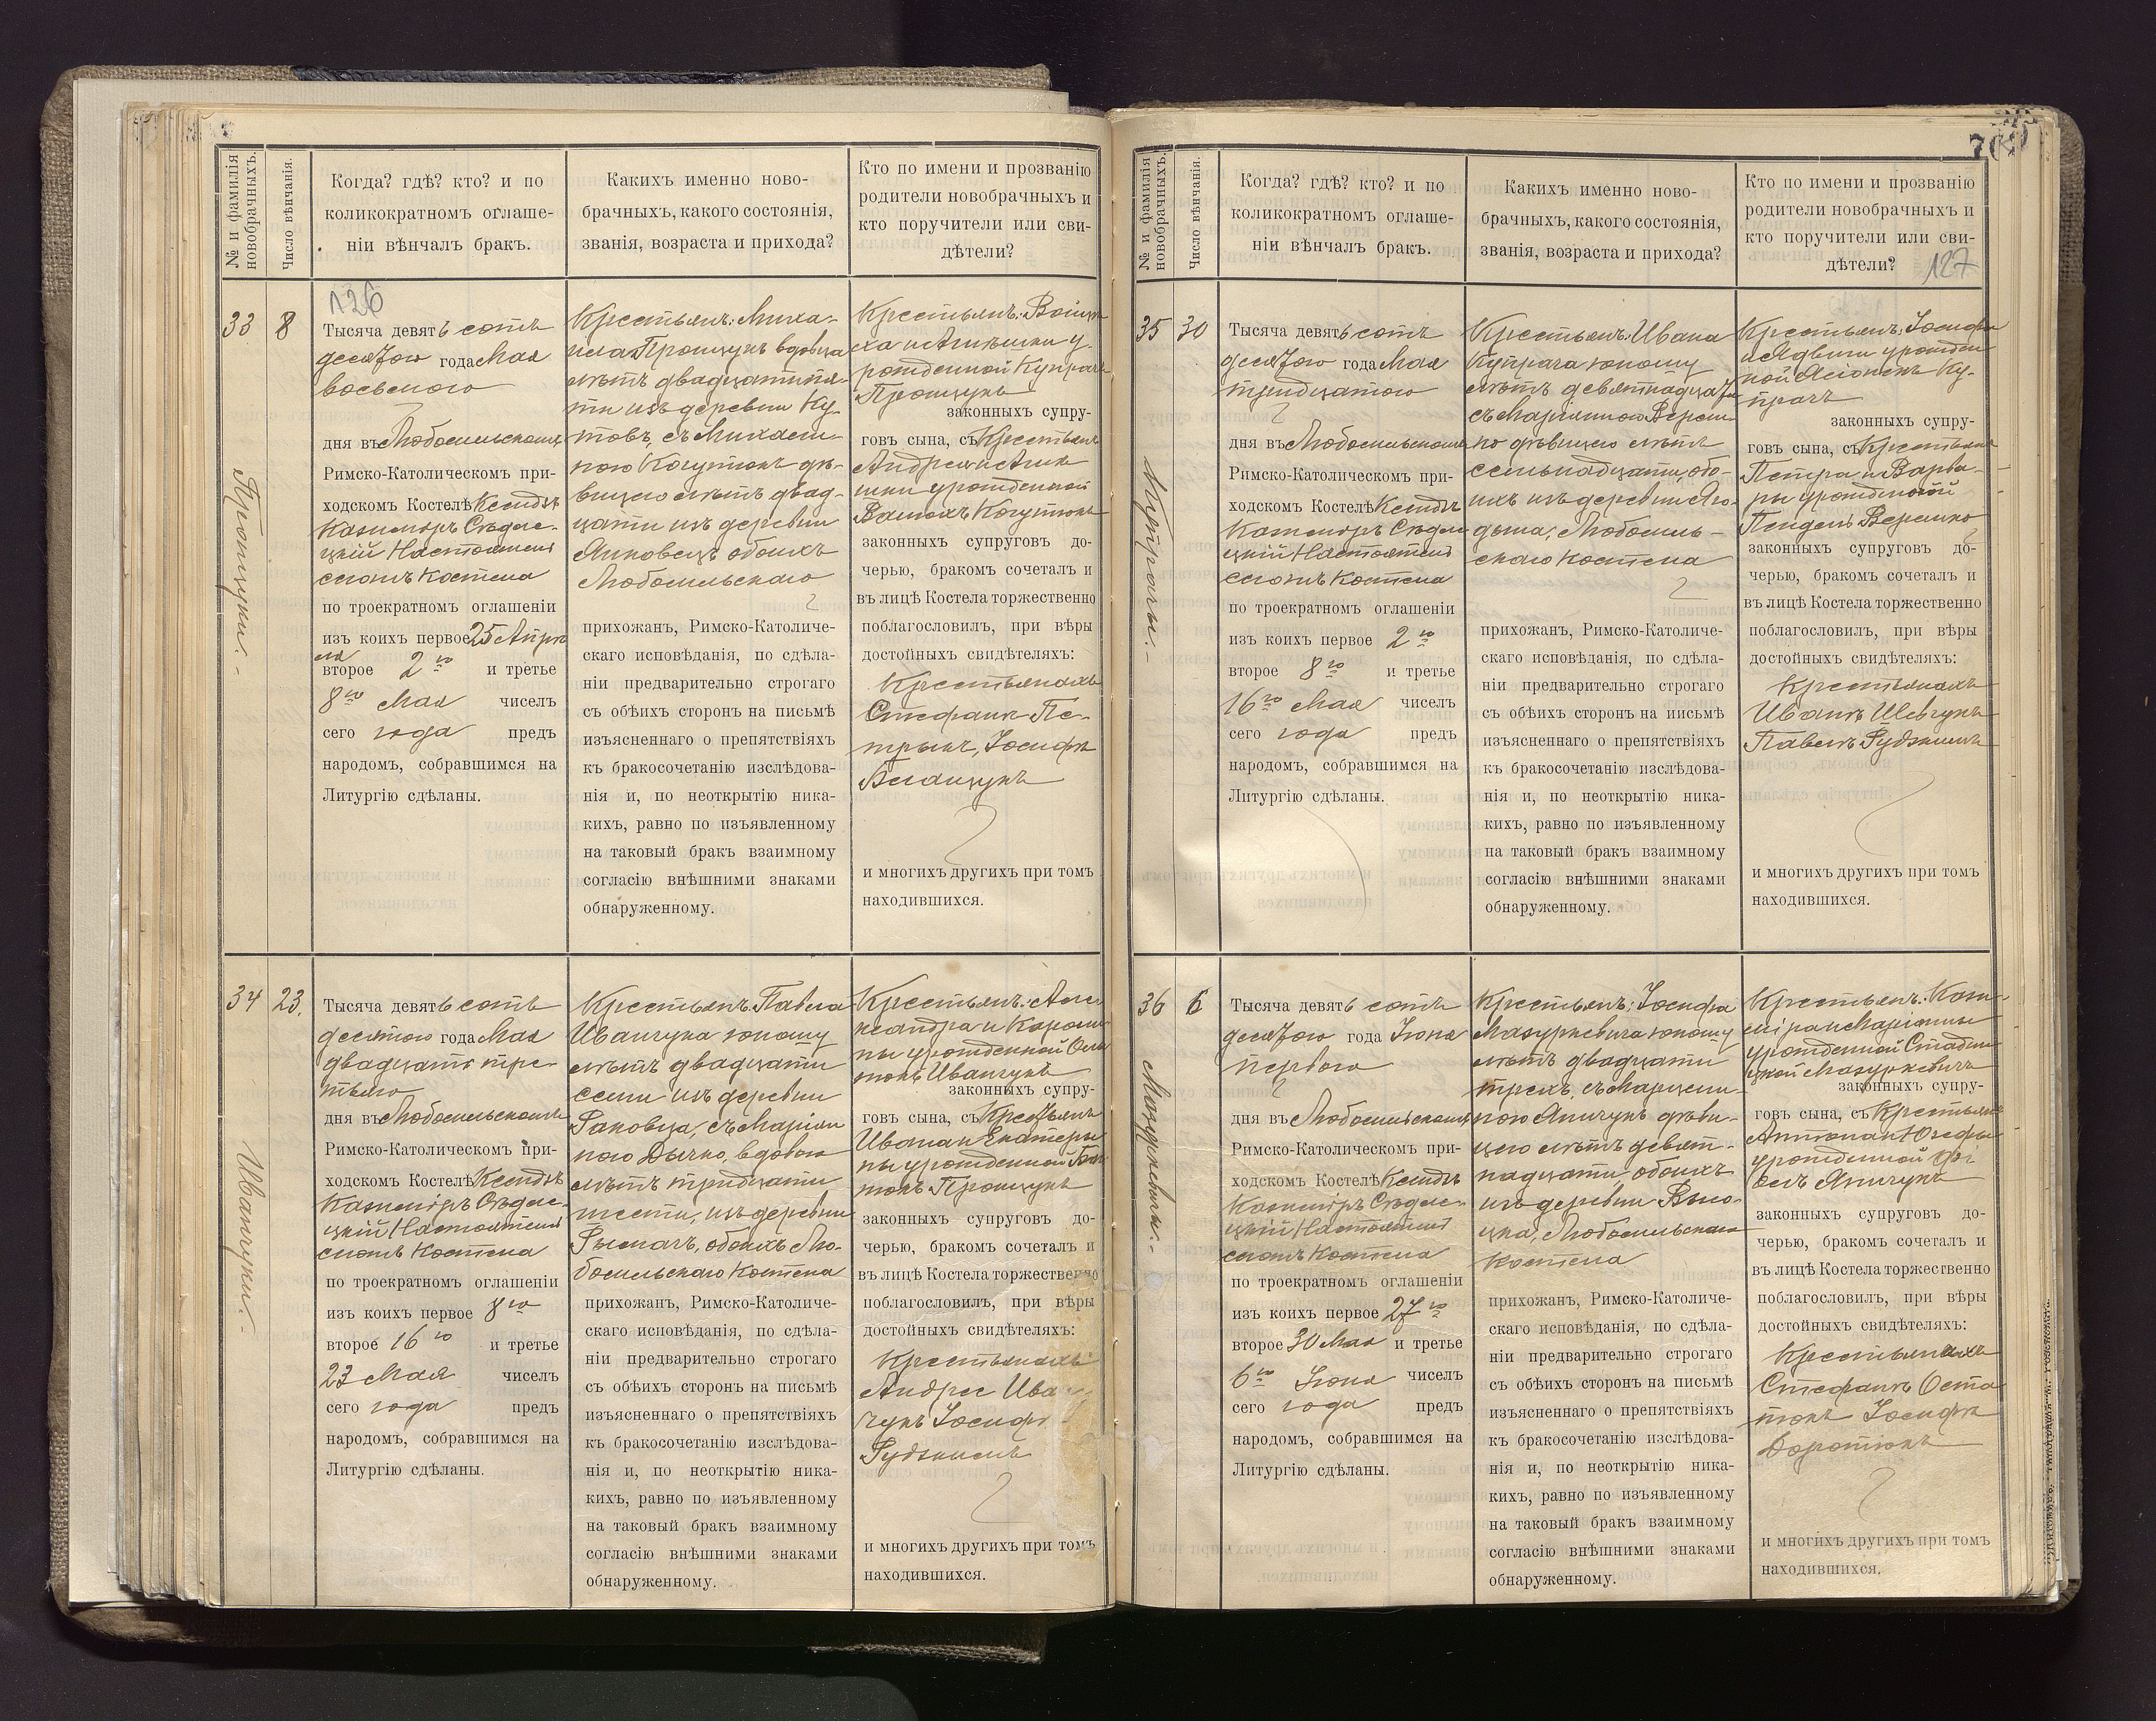 № и фамилія новобрачныхъ.
Число вѣнчанія.
Когда? гдѣ? кто? и по
коликократномъ оглаше-
ніи вѣнчалъ бракъ.
Какихъ именно ново-
брачныхъ, какого состоянія,
званія, возраста и прихода?
Кто по имени и прозванію
родители новобрачныхъ и
кто поручители или сви-
дѣтели?
126
33
8
Тысяча девятьсотъ
десятого года Мая
восьмого
дня въ Любомльскомъ
Римско-Католическомъ при-
ходскомъ Костелѣ Ксендзъ
Казиміръ
Настоятель
сего Костела
по троекратномъ оглашеніи
изъ коихъ первое 25 Апрѣ
ля
второе 2го и третье
8го Мая чиселъ
сего года предъ
народомъ, собравшимся на
Литургію сдѣланы.
Крестьянъ: Миха-
ила Процукъ вдовца
лѣтъ двадцати пя-
ти изъ деревни Ку-
товъ, съ Михали-
ною Когутюкъ дѣ-
вицею лѣтъ двад-
цати изъ деревни
обоихъ
Любомльскаго
прихожанъ, Римско-Католиче-
скаго исповѣданія, по сдѣла-
ніи предварительно строгаго
съ обѣихъ сторонъ на письмѣ
изъясненнаго о препятствіяхъ
къ бракосочетанію изслѣдова-
нія и, по неоткрытію ника-
кихъ, равно по изъявленному
на таковый бракъ взаимному
согласію внѣшними знаками
обнаруженному.
Крестьянъ:
у-
рожденной Купрачъ
Процукъ
законныхъ супру-
говъ сына, съ Крестьянъ
Андрея и
урожденной
Когутюкъ
законныхъ супруговъ до-
черью, бракомъ сочеталъ и
въ лицѣ Костела торжественно
поблагословилъ, при вѣры
достойныхъ свидѣтеляхъ:
Крестьянахъ
Стефанъ Пе-
Іосифъ
и многихъ другихъ при томъ
находившихся.
Процуки.-
34
23.
Тысяча девятьсотъ
десятого года Мая
двадцать тре-
тьяго
дня въ Любомльскомъ
Римско-Католическомъ при-
ходскомъ Костелѣ Ксендзъ
Казиміръ
Настоятель
сего Костела
по троекратномъ оглашеніи
изъ коихъ первое 8го
второе 16го и третье
23 Мая чиселъ
сего года предъ
народомъ, собравшимся на
Литургію сдѣланы.
Крестьянъ: Павла
Иванчука юношу
лѣтъ двадцати
семи изъ деревни
съ Маріян
ною Дычко, вдовою
лѣтъ тридцати
шести, изъ деревни
Рымачъ, обоихъ Лю-
бомльскаго Костела
прихожанъ, Римско-Католиче-
скаго исповѣданія, по сдѣла-
ніи предварительно строгаго
съ обѣихъ сторонъ на письмѣ
изъясненнаго о препятствіяхъ
къ бракосочетанію изслѣдова-
нія и, по неоткрытію ника-
кихъ, равно по изъявленному
на таковый бракъ взаимному
согласію внѣшними знаками
обнаруженному.
Крестьянъ: Алек-
сандра и Кароли-
ны урожденной
Иванчукъ
законныхъ супру-
говъ сына, съ Крестьянъ
Ивана и Екатери-
ны урожденной
Процукъ
законныхъ супруговъ до-
черью, бракомъ сочеталъ и
въ лицѣ Костела торжественно
поблагословилъ, при вѣры
достойныхъ свидѣтеляхъ:
Крестьянахъ
Андрей Иван-
чукъ Іосифъ
Рудзкимъ
и многихъ другихъ при томъ
находившихся.
Иванчуки.-
№ и фамилія новобрачныхъ.
Число вѣнчанія.
Когда? гдѣ? кто? и по
коликократномъ оглаше-
ніи вѣнчалъ бракъ.
Какихъ именно ново-
брачныхъ, какого состоянія,
званія, возраста и прихода?
Кто по имени и прозванію
родители новобрачныхъ и
кто поручители или сви-
дѣтели?
127
35
30
Тысяча девятьсотъ
десятого года Мая
тридцатого
дня въ Любомльскомъ
Римско-Католическомъ при-
ходскомъ Костелѣ Ксендзъ
Казиміръ
Настоятель
сего Костела
по троекратномъ оглашеніи
изъ коихъ первое 2го
второе 8го и третье
16го Мая чиселъ
сего года предъ
народомъ, собравшимся на
Литургію сдѣланы.
Крестьянъ: Ивана
Купрача юношу
лѣтъ девятнадцати
съ Маріянною Вереш-
ко дѣвицею лѣтъ
семьнадцати, обо-
ихъ изъ деревни Яго-
дина, Любомль-
скаго Костела
прихожанъ, Римско-Католиче-
скаго исповѣданія, по сдѣла-
ніи предварительно строгаго
съ обѣихъ сторонъ на письмѣ
изъясненнаго о препятствіяхъ
къ бракосочетанію изслѣдова-
нія и, по неоткрытію ника-
кихъ, равно по изъявленному
на таковый бракъ взаимному
согласію внѣшними знаками
обнаруженному.
Крестьянъ: Іосифа
и Ядвиги урожден-
ной Ку-
прачъ
законныхъ супру-
говъ сына, съ Крестьянъ
Петра и Варва-
ры урожденной
Верешко
законныхъ супруговъ до-
черью, бракомъ сочеталъ и
въ лицѣ Костела торжественно
поблагословилъ, при вѣры
достойныхъ свидѣтеляхъ:
Крестьянахъ
Иванъ Шевчукъ
Павелъ Рудзкимъ
и многихъ другихъ при томъ
находившихся.
Купрачы.-
36
6
Тысяча девятьсотъ
десятого года Іюня
первого
дня въ Любомльскомъ
Римско-Католическомъ при-
ходскомъ Костелѣ Ксендзъ
Казиміръ
Настоятель
сего Костела
по троекратномъ оглашеніи
изъ коихъ первое 27го
второе 30 Мая и третье
6го Іюня чиселъ
сего года предъ
народомъ, собравшимся на
Литургію сдѣланы.
Крестьянъ: Іосифа
Мазуркевича юношу
лѣтъ двадцати
трехъ, съ Марцели-
ною Янчукъ дѣви-
цею лѣтъ девят-
надцати, обоихъ
изъ деревни Высо-
цка, Любомльскаго
Костела
прихожанъ, Римско-Католиче-
скаго исповѣданія, по сдѣла-
ніи предварительно строгаго
съ обѣихъ сторонъ на письмѣ
изъясненнаго о препятствіяхъ
къ бракосочетанію изслѣдова-
нія и, по неоткрытію ника-
кихъ, равно по изъявленному
на таковый бракъ взаимному
согласію внѣшними знаками
обнаруженному.
Крестьянъ: Кази-
міра и Маріанны
урожденной
Мазуркевичъ
законныхъ супру-
говъ сына, съ Крестьянъ
Антона и Юзефы
урожденной
Янчукъ
законныхъ супруговъ до-
черью, бракомъ сочеталъ и
въ лицѣ Костела торжественно
поблагословилъ, при вѣры
достойныхъ свидѣтеляхъ:
Крестьянахъ
Стефанъ Оста-
пюкъ Іосифъ
Доротюкъ
и многихъ другихъ при томъ
находившихся.
Мазуркевичы.-